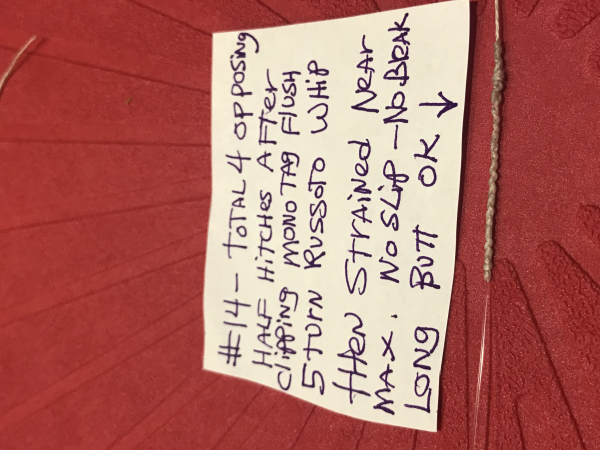 #14 - TOTAL 4 OPPOSING
HALF HITCHES AFTER
CLIPPING MONO TAG FLUSH
5 TURN RUSSOTO WHIP
THEN STRAINED NEAR
MAX. NO SLIP - NO BREAK
LONG BUTT OK ↓